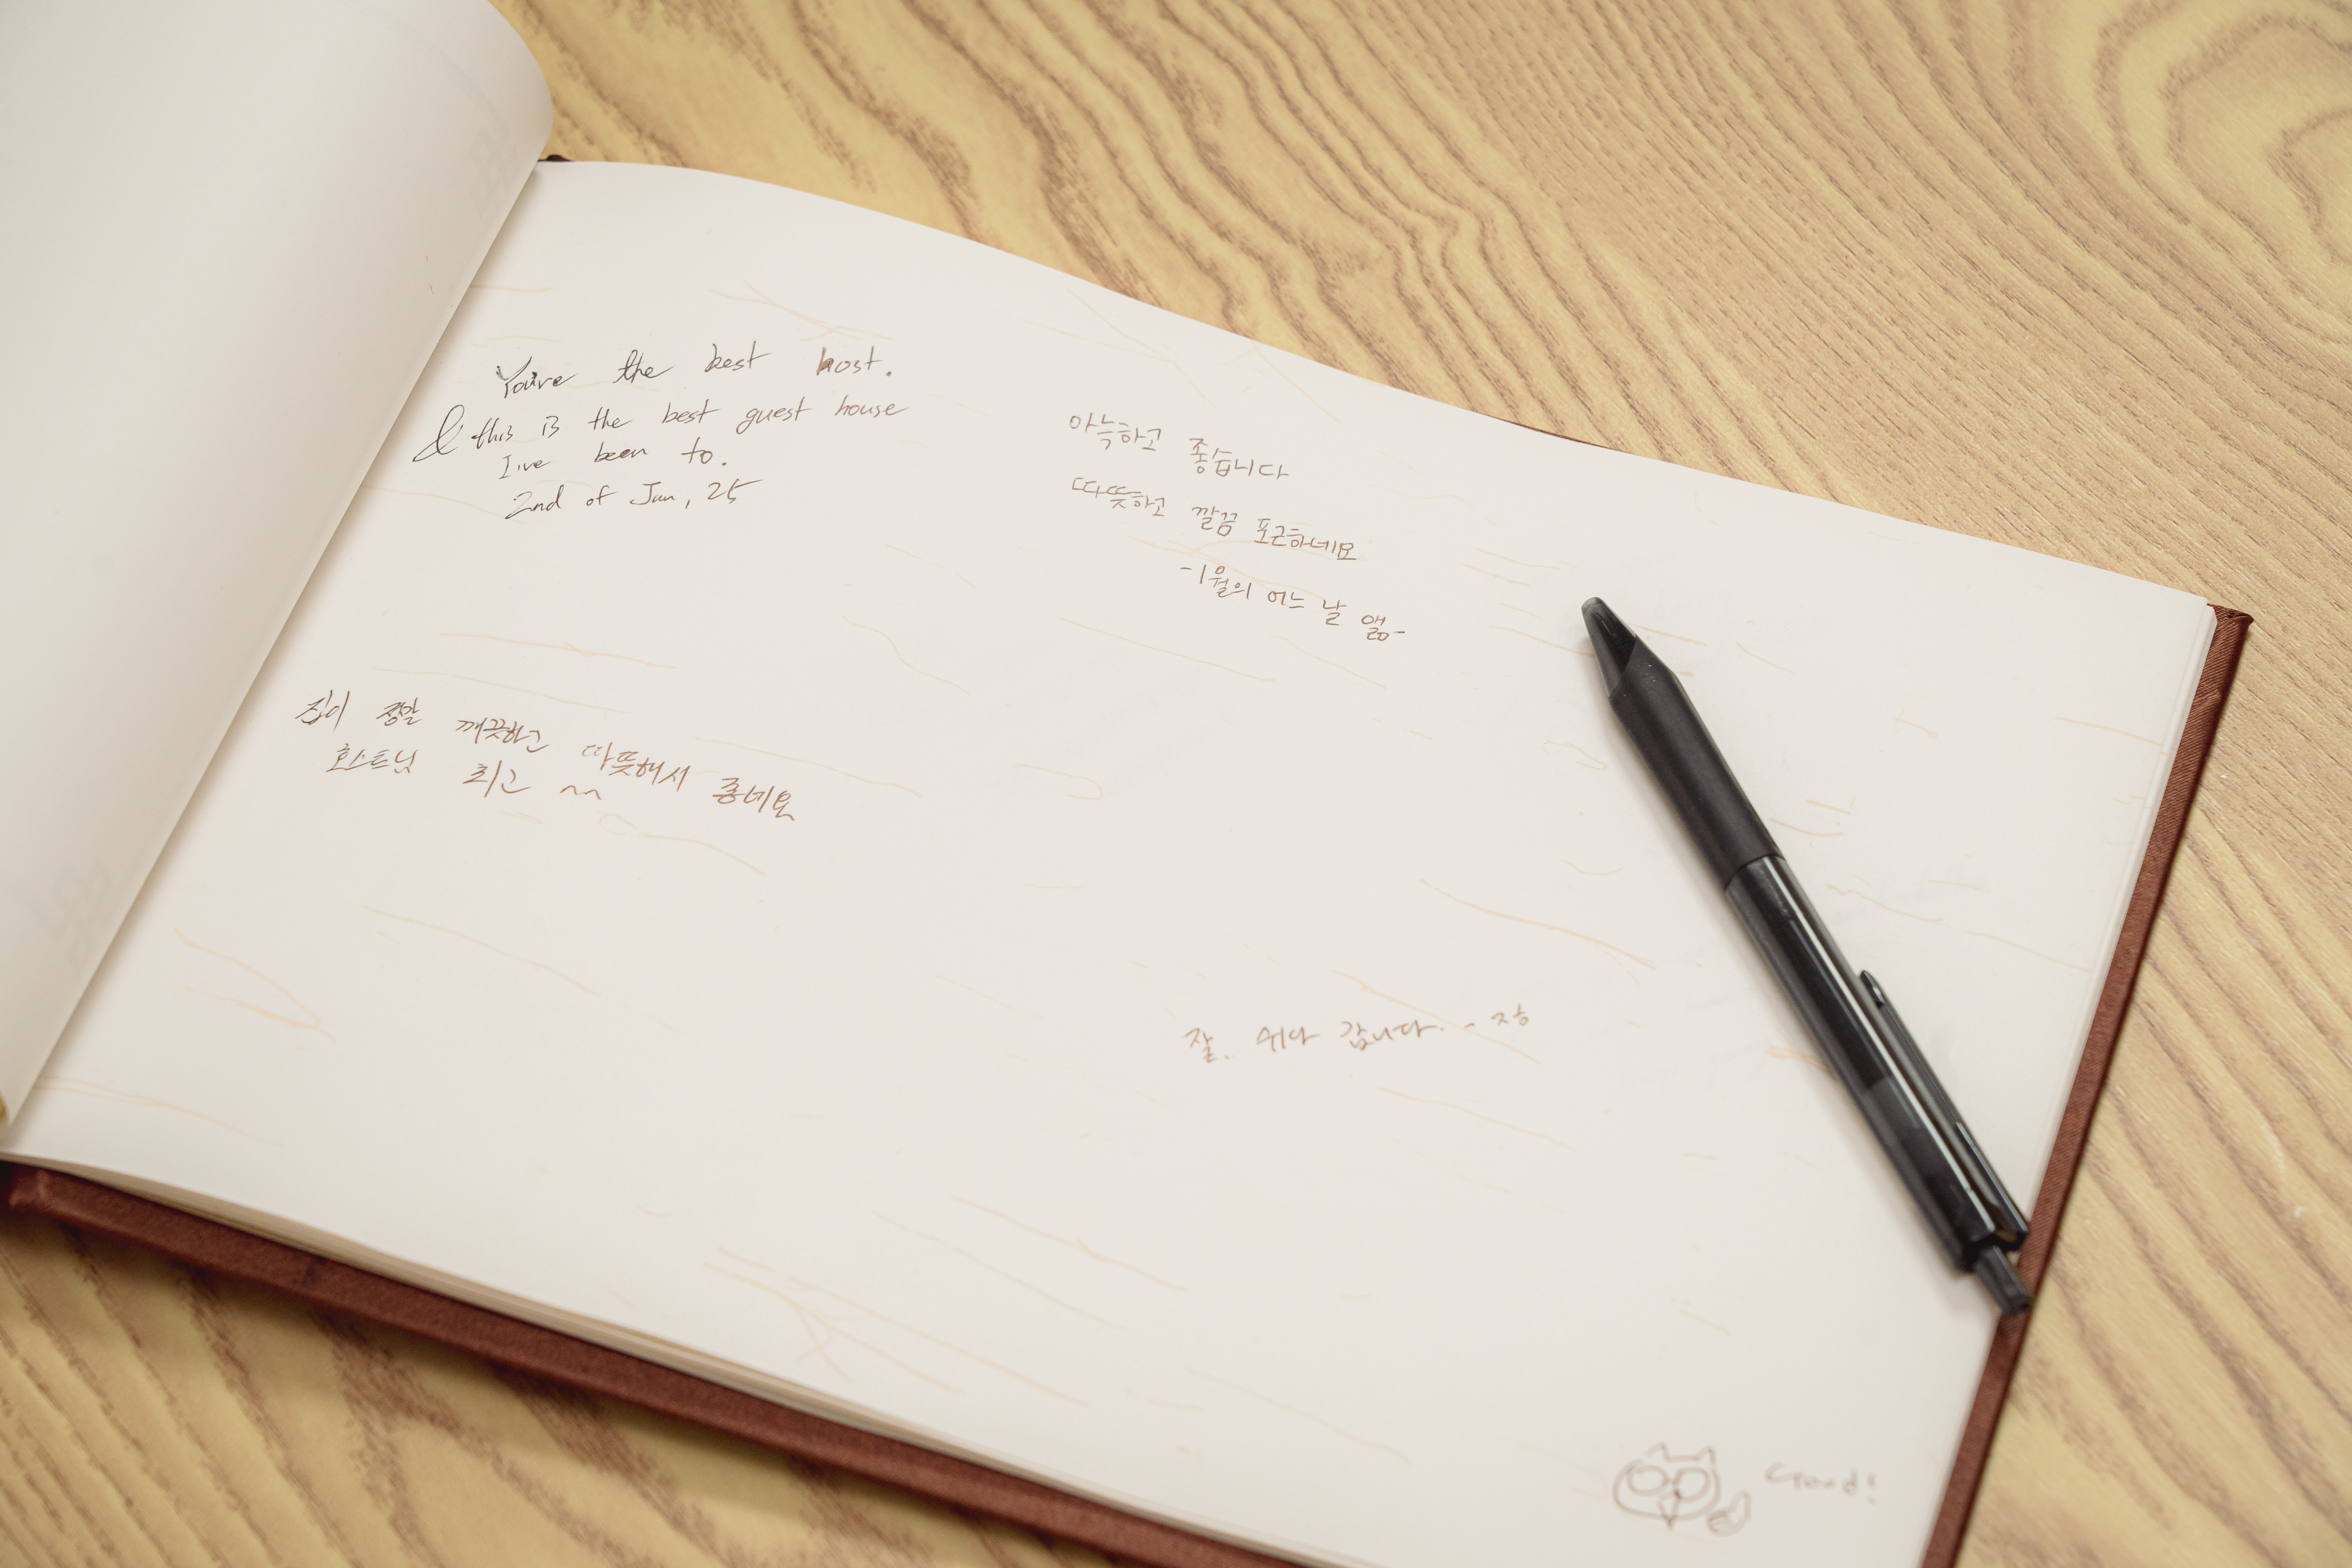 You're the best host.
& this is the best guest house
I've been to.
2nd of Jan, 25
아늑하고 좋습니다
따뜻하고 깔끔 포근하네요
-1월의 어느 날 앪-
집이 정말 깨끗하고 따뜻해서 좋네요
호스트님 최고 ^^
잘. 쉬다 갑니다. - ㅈㅎ
Good!